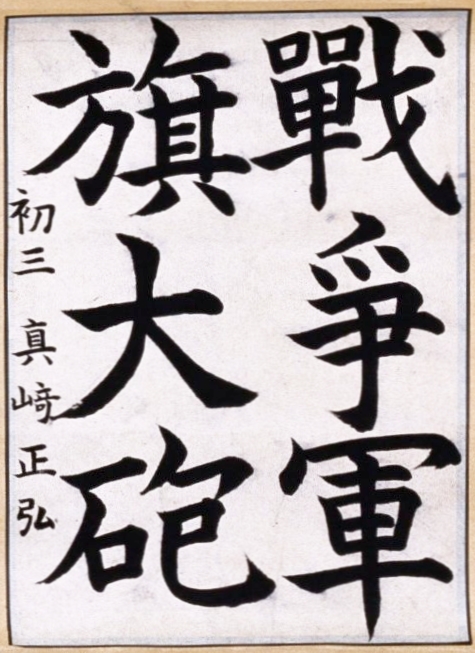 戰爭軍
旗大砲
初三 真﨑正弘